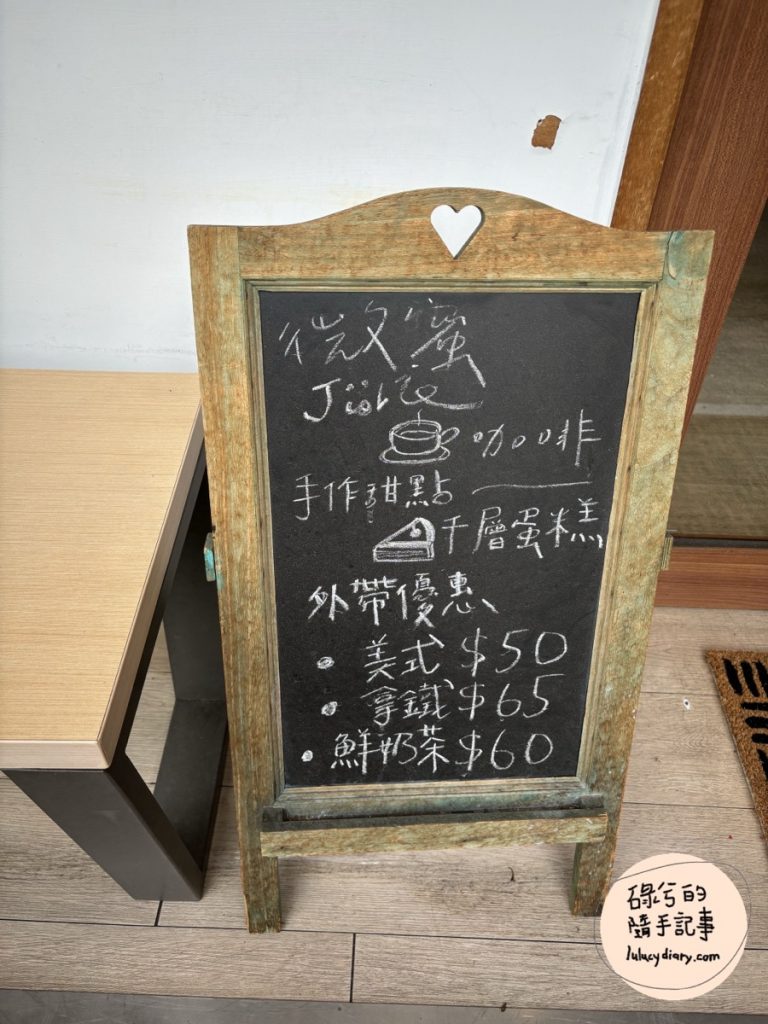 微蜜
咖啡
手作甜點
千層蛋糕
外帶優惠
• 美式 $50
• 拿鐵 $65
• 鮮奶茶 $60
碌兮的
隨手記事
lulucydiary.com